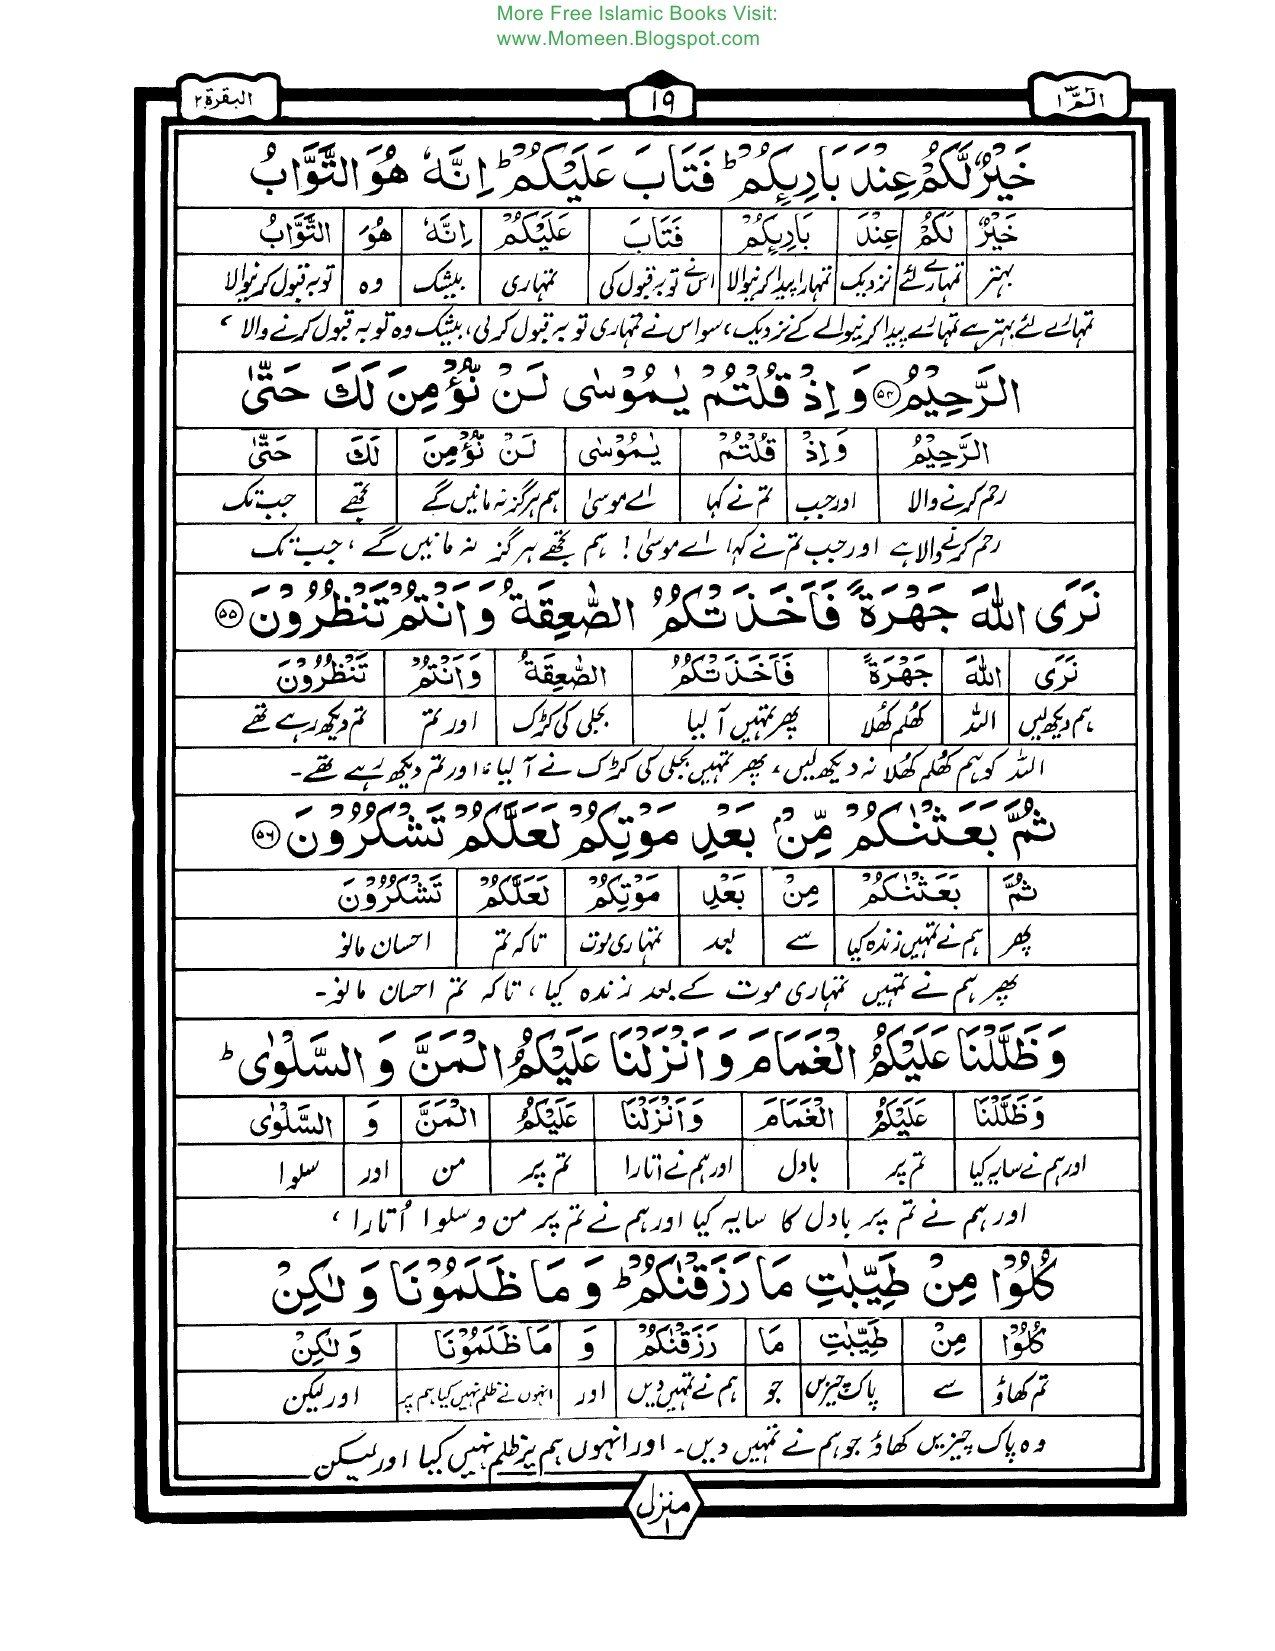 More Free Islamic Books Visit:
www.Momeen.Blogspot.com
الٓمّٓ ۱ ۱۹ البقرة ۲
خَيْرٌ لَّكُمْ عِنْدَ بَارِىِٕكُمْ ؕ فَتَابَ عَلَيْكُمْ ؕ اِنَّهٗ هُوَ التَّوَّابُ
خَيْرٌ لَكُمْ عِنْدَ بَارِىِٕكُمْ فَتَابَ عَلَيْكُمْ اِنَّهٗ هُوَ التَّوَّابُ
بہتر تمہارے لئے نزدیک تمہارا پیدا کرنیوالا اس نے توبہ قبول کی تمہاری بیشک وہ توبہ قبول کرنیوالا
تمہارے لئے بہتر ہے تمہارے پیدا کرنیوالے کے نزدیک، سو اس نے تمہاری توبہ قبول کرلی، بیشک وہ توبہ قبول کرنے والا ،
الرَّحِيْمُ ﴿۵۴﴾ وَ اِذْ قُلْتُمْ يٰمُوْسٰى لَنْ نُّؤْمِنَ لَكَ حَتّٰى
الرَّحِيْمُ وَ اِذْ قُلْتُمْ يٰمُوْسٰى لَنْ نُّؤْمِنَ لَكَ حَتّٰى
رحم کرنے والا اور جب تم نے کہا اے موسیٰ ہم ہرگز نہ مانیں گے تجھے جب تک
رحم کرنے والا ہے اور جب تم نے کہا اے موسیٰ ! ہم تجھے ہرگز نہ مانیں گے ، جب تک
نَرَى اللّٰهَ جَهْرَةً فَاَخَذَتْكُمُ الصّٰعِقَةُ وَ اَنْتُمْ تَنْظُرُوْنَ ﴿۵۵﴾
نَرَى اللّٰهَ جَهْرَةً فَاَخَذَتْكُمُ الصّٰعِقَةُ وَ اَنْتُمْ تَنْظُرُوْنَ
ہم دیکھ لیں اللہ کھلم کھلا پھر تمہیں آ لیا بجلی کی کڑک اور تم تم دیکھ رہے تھے
اللہ کو ہم کھلم کھلا نہ دیکھ لیں، پھر تمہیں بجلی کی کڑک نے آ لیا، اور تم دیکھ رہے تھے۔
ثُمَّ بَعَثْنٰكُمْ مِّنْۢ بَعْدِ مَوْتِكُمْ لَعَلَّكُمْ تَشْكُرُوْنَ ﴿۵۶﴾
ثُمَّ بَعَثْنٰكُمْ مِنْ بَعْدِ مَوْتِكُمْ لَعَلَّكُمْ تَشْكُرُوْنَ
پھر ہم نے تمہیں زندہ کیا سے بعد تمہاری موت تاکہ تم احسان مانو
پھر ہم نے تمہیں تمہاری موت کے بعد زندہ کیا ، تاکہ تم احسان مانو۔
وَ ظَلَّلْنَا عَلَيْكُمُ الْغَمَامَ وَ اَنْزَلْنَا عَلَيْكُمُ الْمَنَّ وَ السَّلْوٰى ؕ
وَ ظَلَّلْنَا عَلَيْكُمُ الْغَمَامَ وَ اَنْزَلْنَا عَلَيْكُمُ الْمَنَّ وَ السَّلْوٰى
اور ہم نے سایہ کیا تم پر بادل اور ہم نے اتارا تم پر من اور سلوا
اور ہم نے تم پر بادل کا سایہ کیا اور ہم نے تم پر من و سلوا اُتارا ،
كُلُوْا مِنْ طَيِّبٰتِ مَا رَزَقْنٰكُمْ ؕ وَ مَا ظَلَمُوْنَا وَ لٰكِنْ
كُلُوْا مِنْ طَيِّبٰتِ مَا رَزَقْنٰكُمْ وَ مَا ظَلَمُوْنَا وَ لٰكِنْ
تم کھاؤ سے پاک چیزیں جو ہم نے تمہیں دیں اور انہوں نے ظلم نہیں کیا ہم پر اور لیکن
وہ پاک چیزیں کھاؤ جو ہم نے تمہیں دیں۔ اور انہوں ہم پر ظلم نہیں کیا اور لیکن
منزل ۱